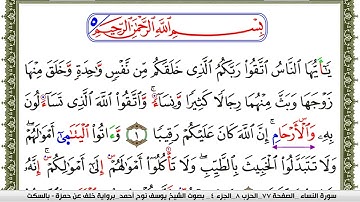 بِسْمِ اللَّهِ الرَّحْمَٰنِ الرَّحِيمِ
يَٰٓأَيُّهَا النَّاسُ اتَّقُوا رَبَّكُمُ الَّذِى خَلَقَكُم مِّن نَّفْسٍ وَٰحِدَةٍ وَخَلَقَ مِنْهَا
زَوْجَهَا وَبَثَّ مِنْهُمَا رِجَالًا كَثِيرًا وَنِسَآءً ۚ وَاتَّقُوا اللَّهَ الَّذِى تَسَآءَلُونَ
بِهِۦ وَالْأَرْحَامِ ۚ إِنَّ اللَّهَ كَانَ عَلَيْكُمْ رَقِيبًا ١ وَءَاتُوا الْيَتَٰمَىٰٓ أَمْوَٰلَهُمْ ۖ
وَلَا تَتَبَدَّلُوا الْخَبِيثَ بِالطَّيِّبِ ۖ وَلَا تَأْكُلُوٓا أَمْوَٰلَهُمْ إِلَىٰٓ أَمْوَٰلِكُمْ ۚ إِنَّهُۥ
سورة النساء - الصفحة ٧٧ الحزب ٨ الجزء ٤ بصوت الشيخ يوسف نوح أحمد برواية خلف عن حمزة - بالسكت